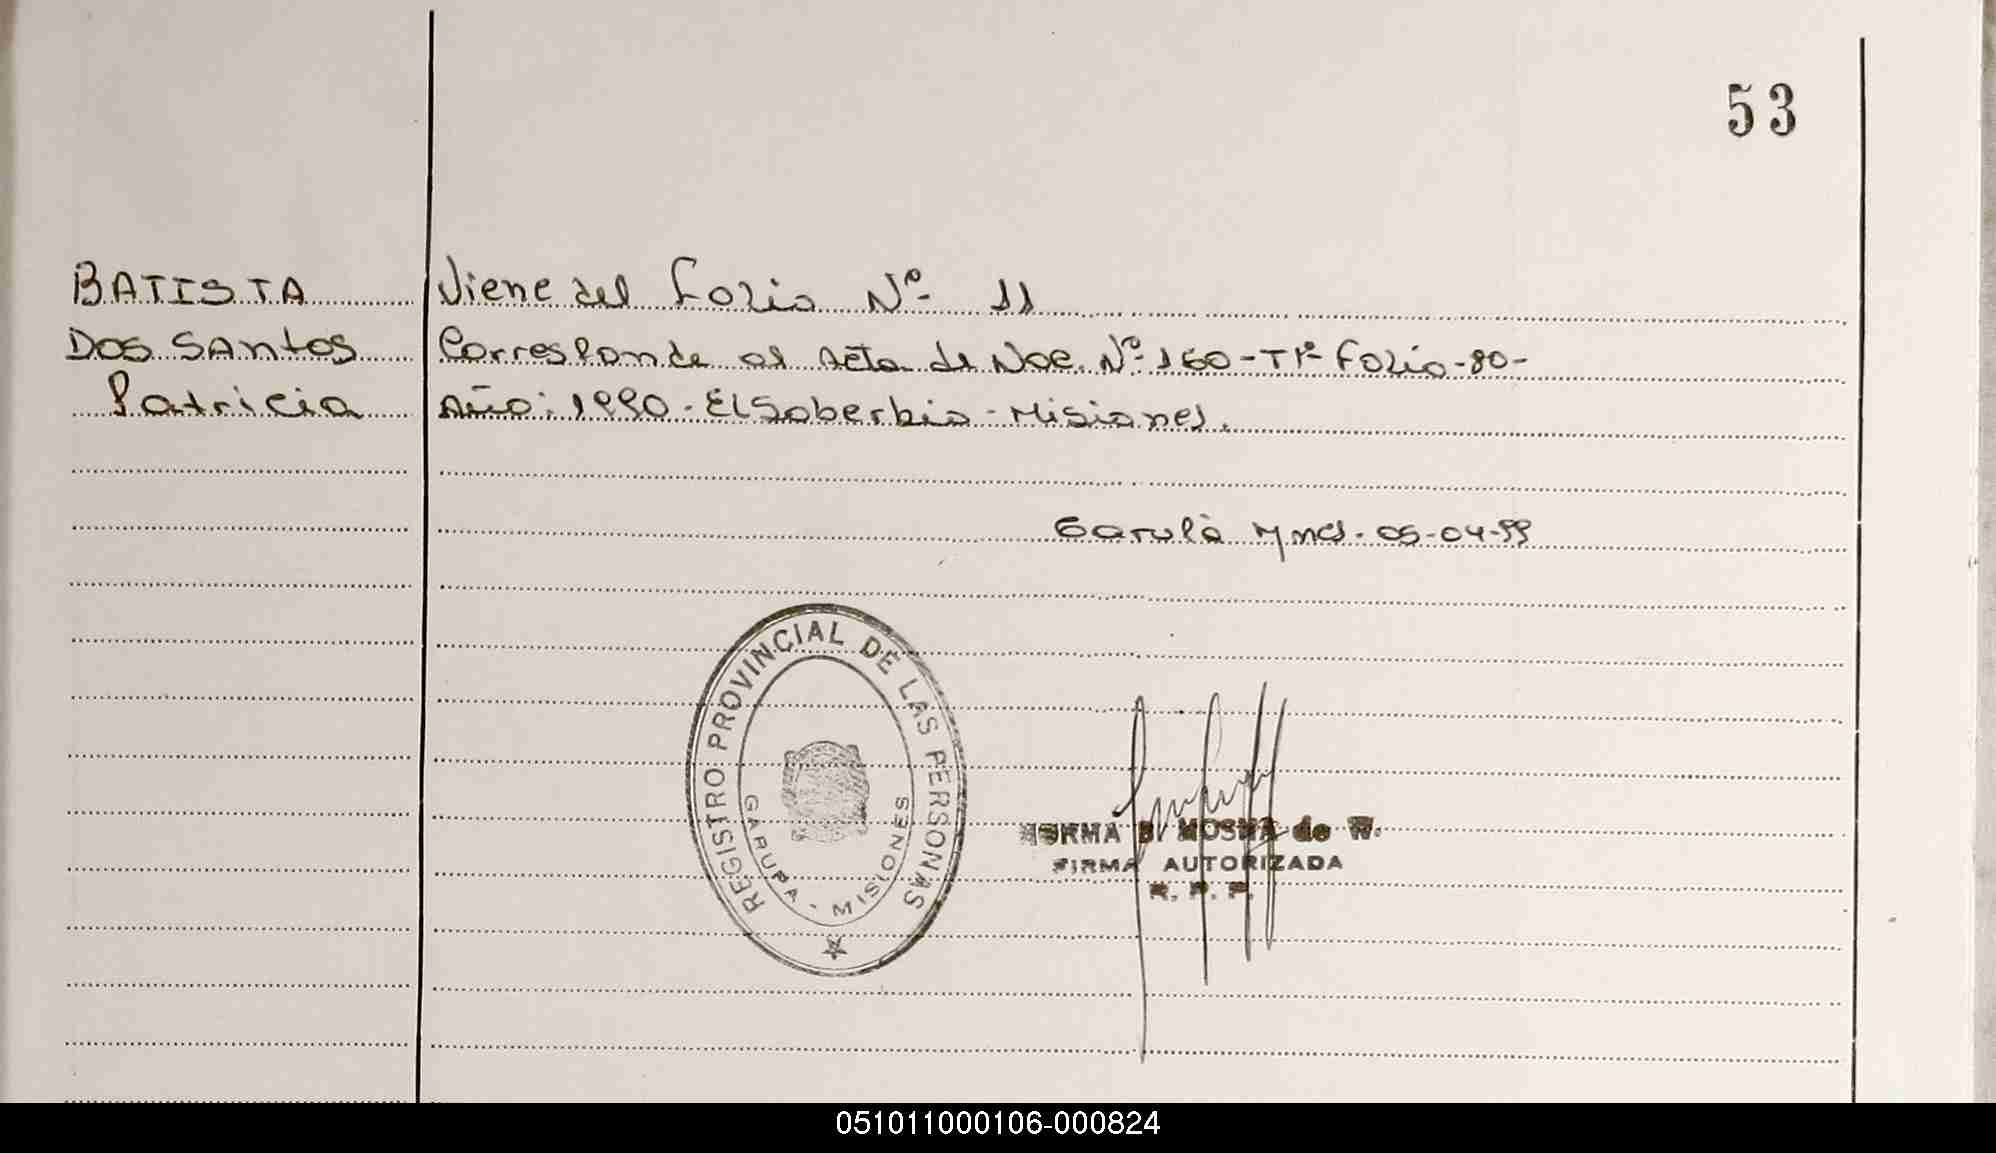 53
BATISTA
Viene del Folio Nº- 11
DOS SANtos
Corresponde al Acta de Nac. Nº-160-Tº1º Folio-80-
Patricia
Año: 1990-El Soberbio-Misiones.
Garupá Mnes. 05-04-99
REGISTRO PROVINCIAL DE LAS PERSONAS
GARUPA - MISIONES
NORMA B. de W.
FIRMA AUTORIZADA
R. P. P.
051011000106-000824